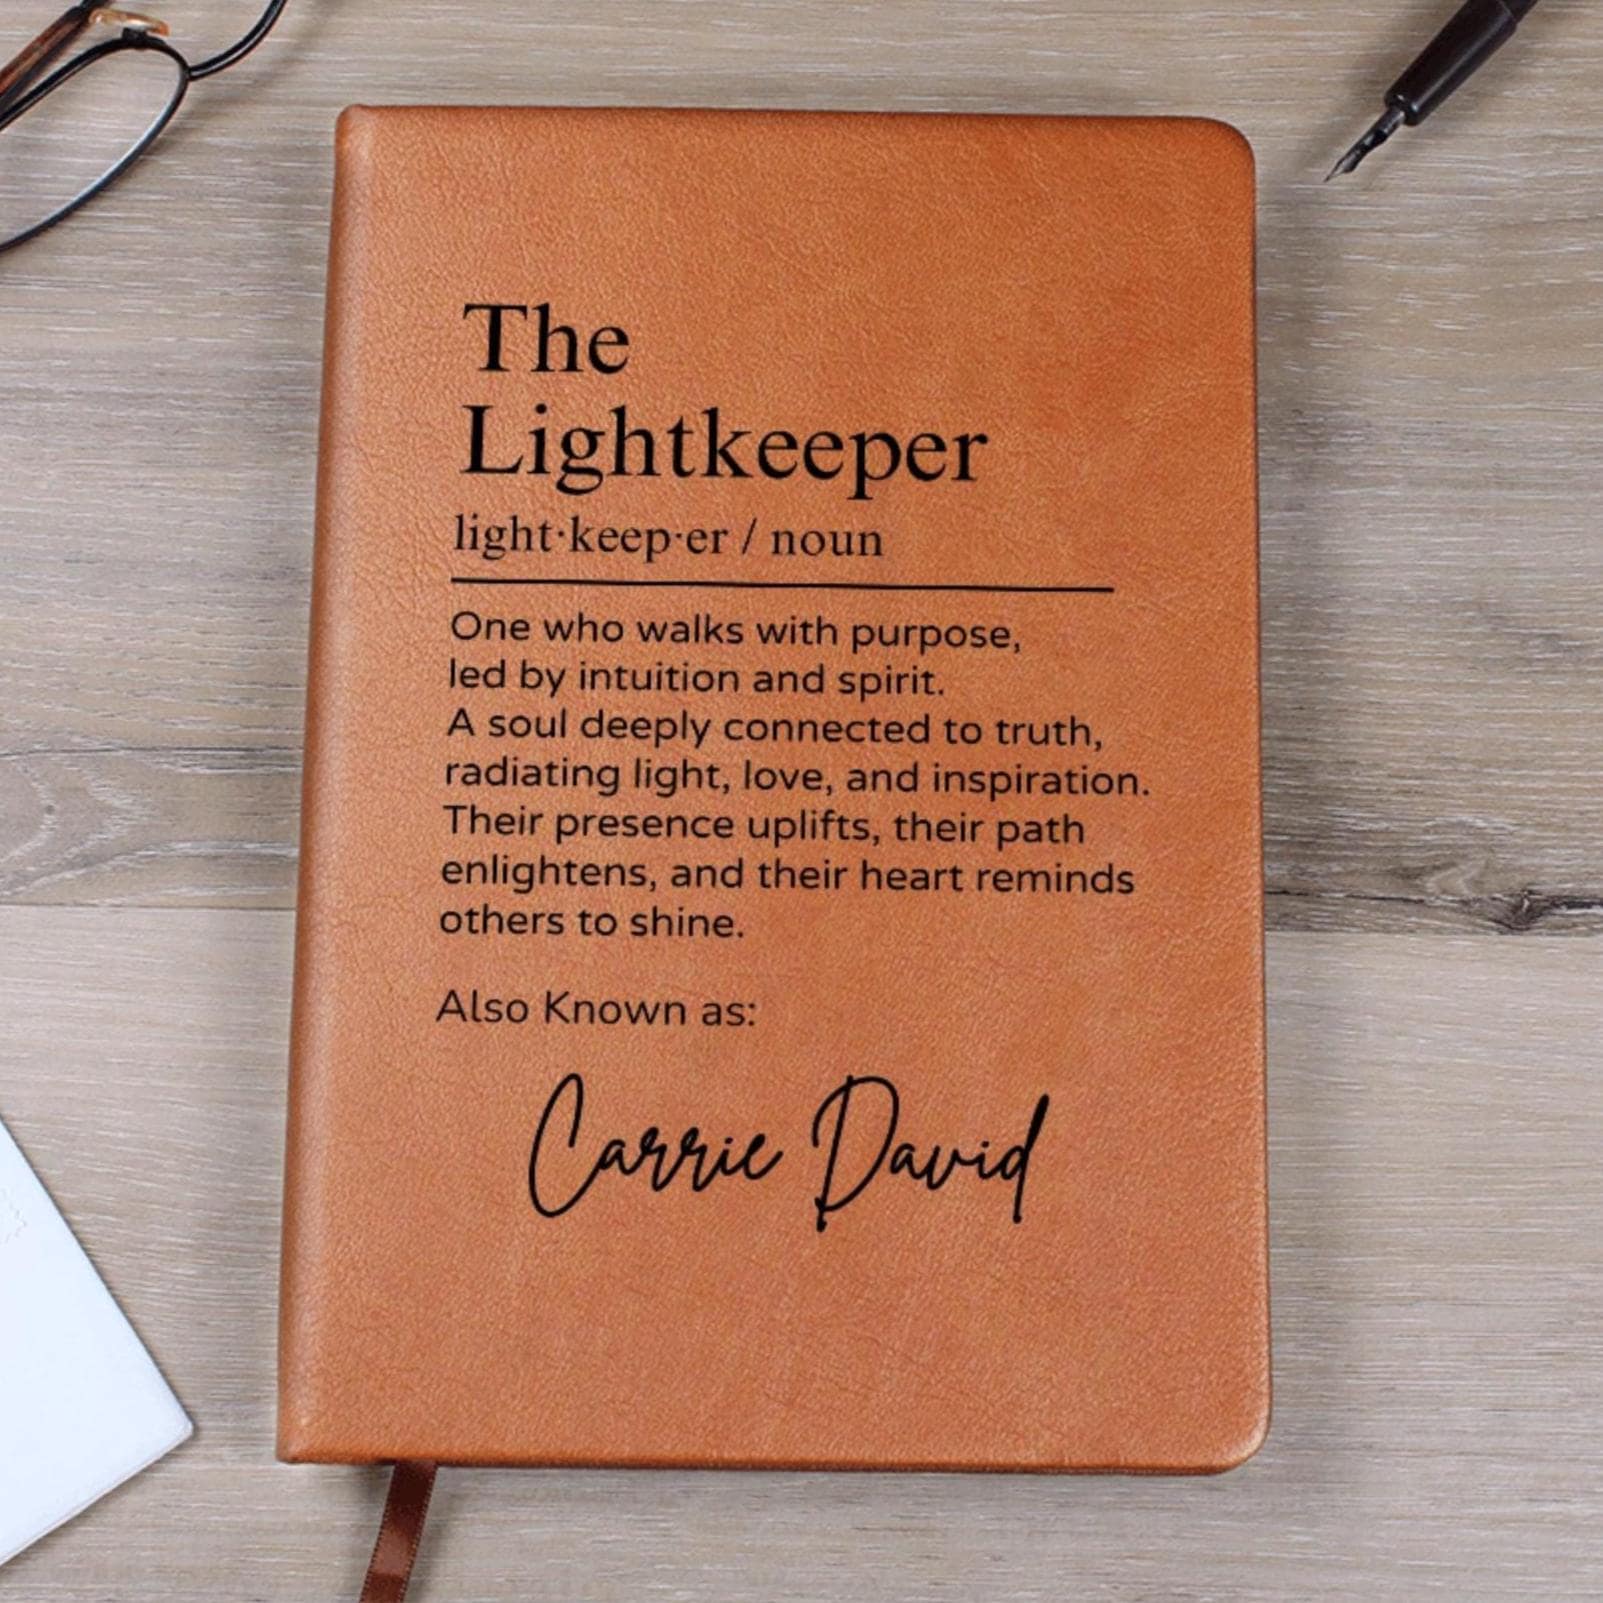 The
Lightkeeper
light·keep·er / noun
One who walks with purpose,
led by intuition and spirit.
A soul deeply connected to truth,
radiating light, love, and inspiration.
Their presence uplifts, their path
enlightens, and their heart reminds
others to shine.
Also Known as:
Carrie David